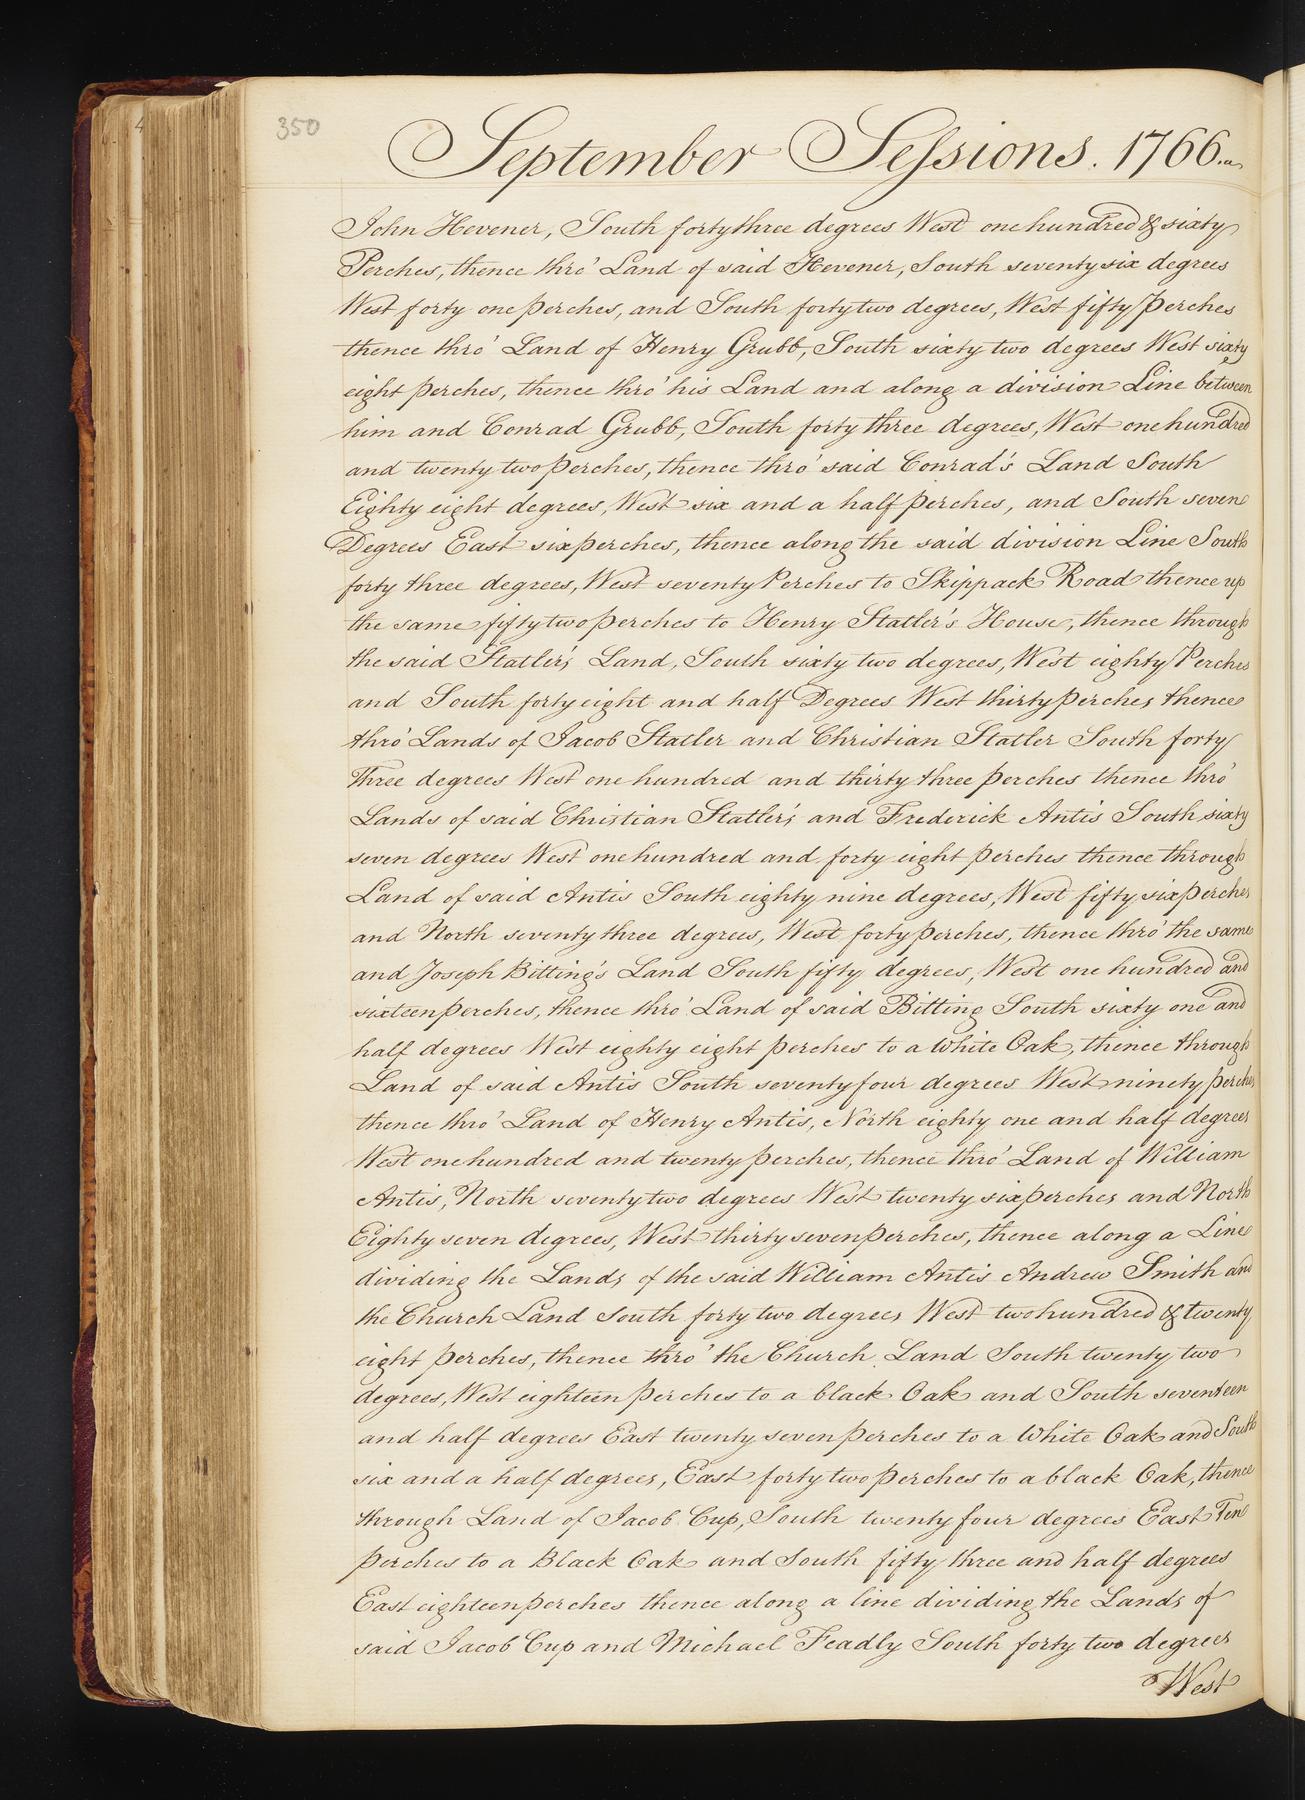 350
September Sessions. 1766.
John Hevener, South forty three degrees West one hundred & sixty
Perches, thence thro' Land of said Hevener, South seventy six degrees
West forty one perches, and South forty two degrees, West fifty Perches
thence thro' Land of Henry Grubb, South sixty two degrees West sixty
eight perches, thence thro' his Land and along a division Line between
him and Conrad Grubb, South forty three degrees, West one hundred
and twenty two perches, thence thro' said Conrad's Land South
Eighty eight degrees, West six and a half perches, and South seven
Degrees East six perches, thence along the said division Line South
forty three degrees, West seventy Perches to Skippack Road thence up
the same fifty two perches to Henry Statler's House, thence through
the said Statler's Land, South sixty two degrees, West eighty Perches
and South forty eight and half Degrees West thirty perches thence
thro' Lands of Jacob Statler and Christian Statler South forty
Three degrees West one hundred and thirty three perches thence thro'
Lands of said Christian Statler's and Frederick Antis South sixty
seven degrees West one hundred and forty eight perches thence through
Land of said Antis South eighty nine degrees, West fifty six perches
and North seventy three degrees, West forty perches, thence thro' the same
and Joseph Bitting's Land South fifty degrees, West one hundred and
sixteen perches, thence thro' Land of said Bitting South sixty one and
half degrees West eighty eight perches to a White Oak, thence through
Land of said Antis South seventy four degrees West ninety perches
thence thro' Land of Henry Antis, North eighty one and half degrees
West one hundred and twenty perches, thence thro' Land of William
Antis, North seventy two degrees West twenty six perches and North
Eighty seven degrees, West thirty seven perches, thence along a Line
dividing the Lands of the said William Antis Andrew Smith and
the Church Land South forty two degrees West two hundred & twenty
eight perches, thence thro' the Church Land South twenty two
degrees, West eighteen perches to a black Oak and South seventeen
and half degrees East twenty seven perches to a White Oak and South
six and a half degrees, East forty two perches to a black Oak, thence
through Land of Jacob Cup, South twenty four degrees East Ten
perches to a Black Oak and South fifty three and half degrees
East eighteen perches thence along a line dividing the Lands of
said Jacob Cup and Michael Feadly South forty two degrees
West